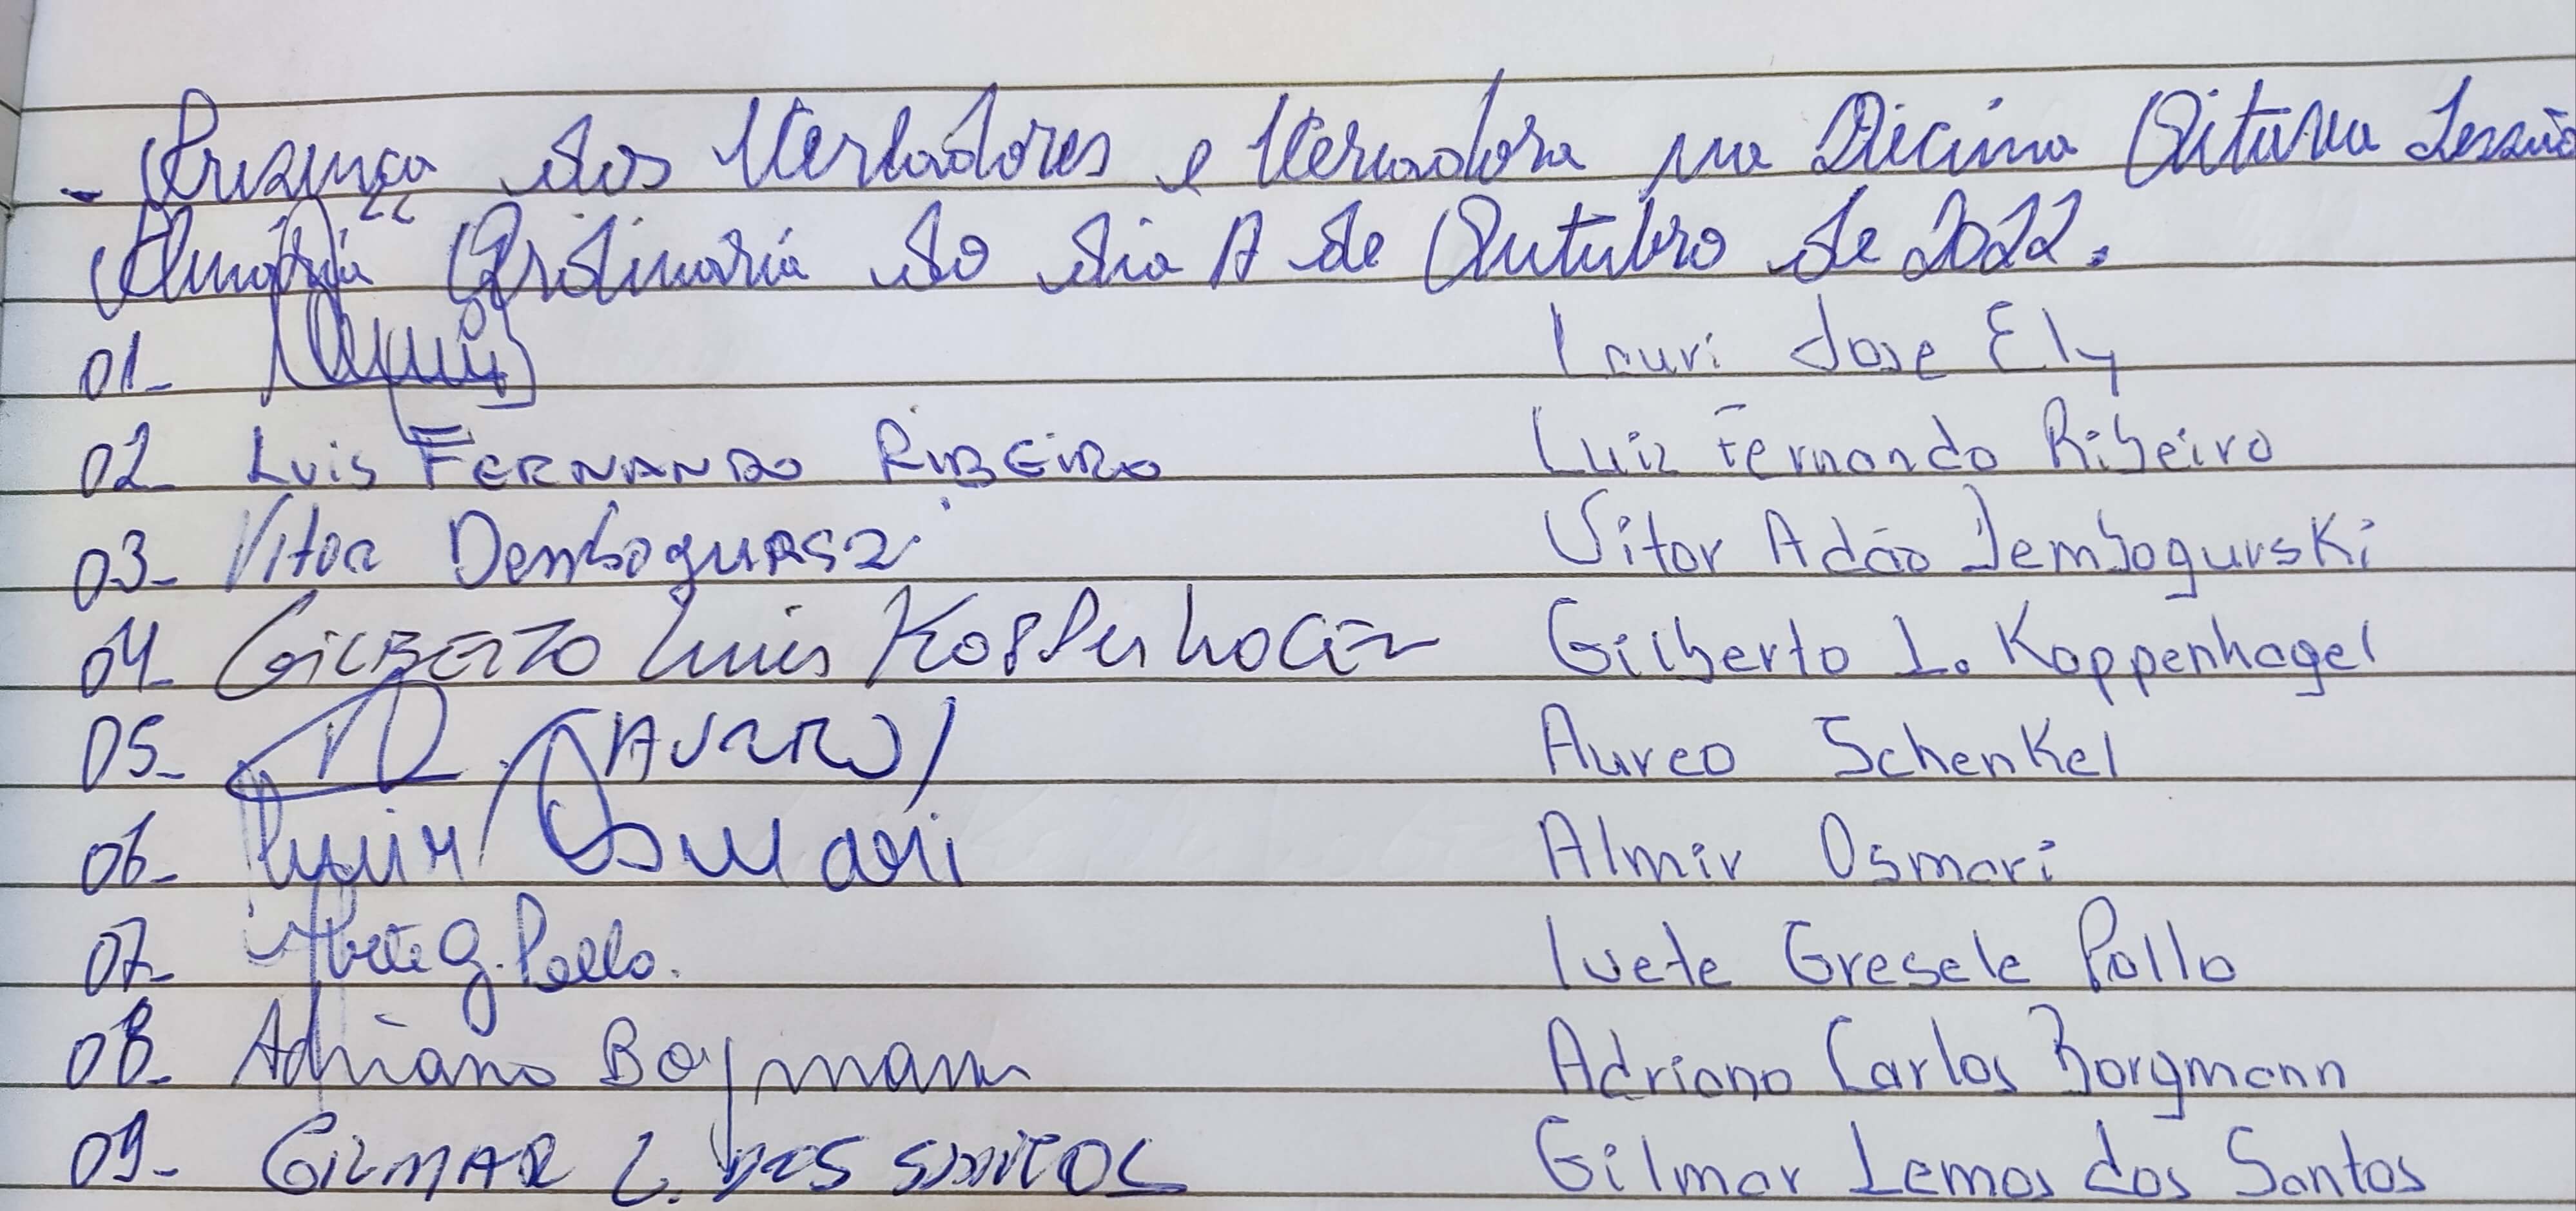 - Presença dos Vereadores e Vereadora na Décima Oitava Sessão
Plenária Ordinária do dia de Outubro de 2022.
01- Lauri Jose Ely
02- Luis FERNANDO RIBEIRO Luiz Fernando Ribeiro
03- Vitor Dembogurski Vitor Adão Dembogurski
04- GILBERTO Luis Koppenhagen Gilberto L. Koppenhagel
05- Aureo Schenkel
06- Almir Osmari Almir Osmari
07- Ivete G. Pollo. Ivete Gresele Pollo
08- Adriano Borgmann Adriano Carlos Borgmann
09- GILMAR L. DOS SANTOS Gilmar Lemos dos Santos